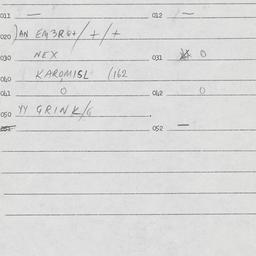 011 — 012 —
020 )AN EM3RG+/+/+
030 NEX 031 0
040 KARQMISL (162
041 0 042 0
050 YY GRINK/G
052 —